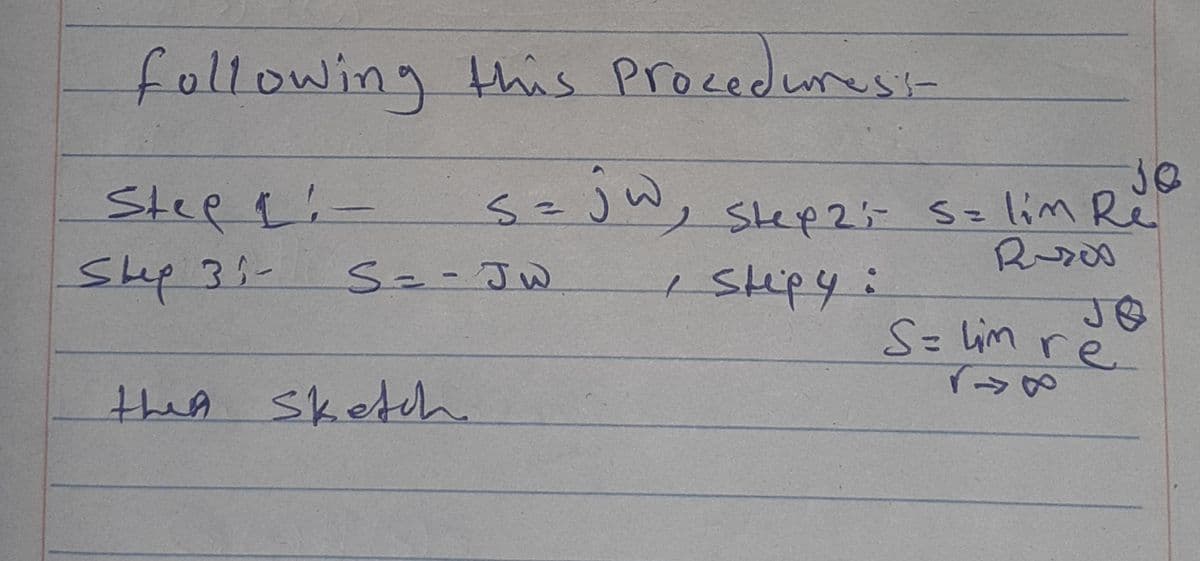 following this procedures:-
Step 1:- s = jw, Step 2:- s = lim Re^jθ
R→∞
Step 3:- S = - JW , Step 4:
S = lim re^Jθ
r→∞
then sketch